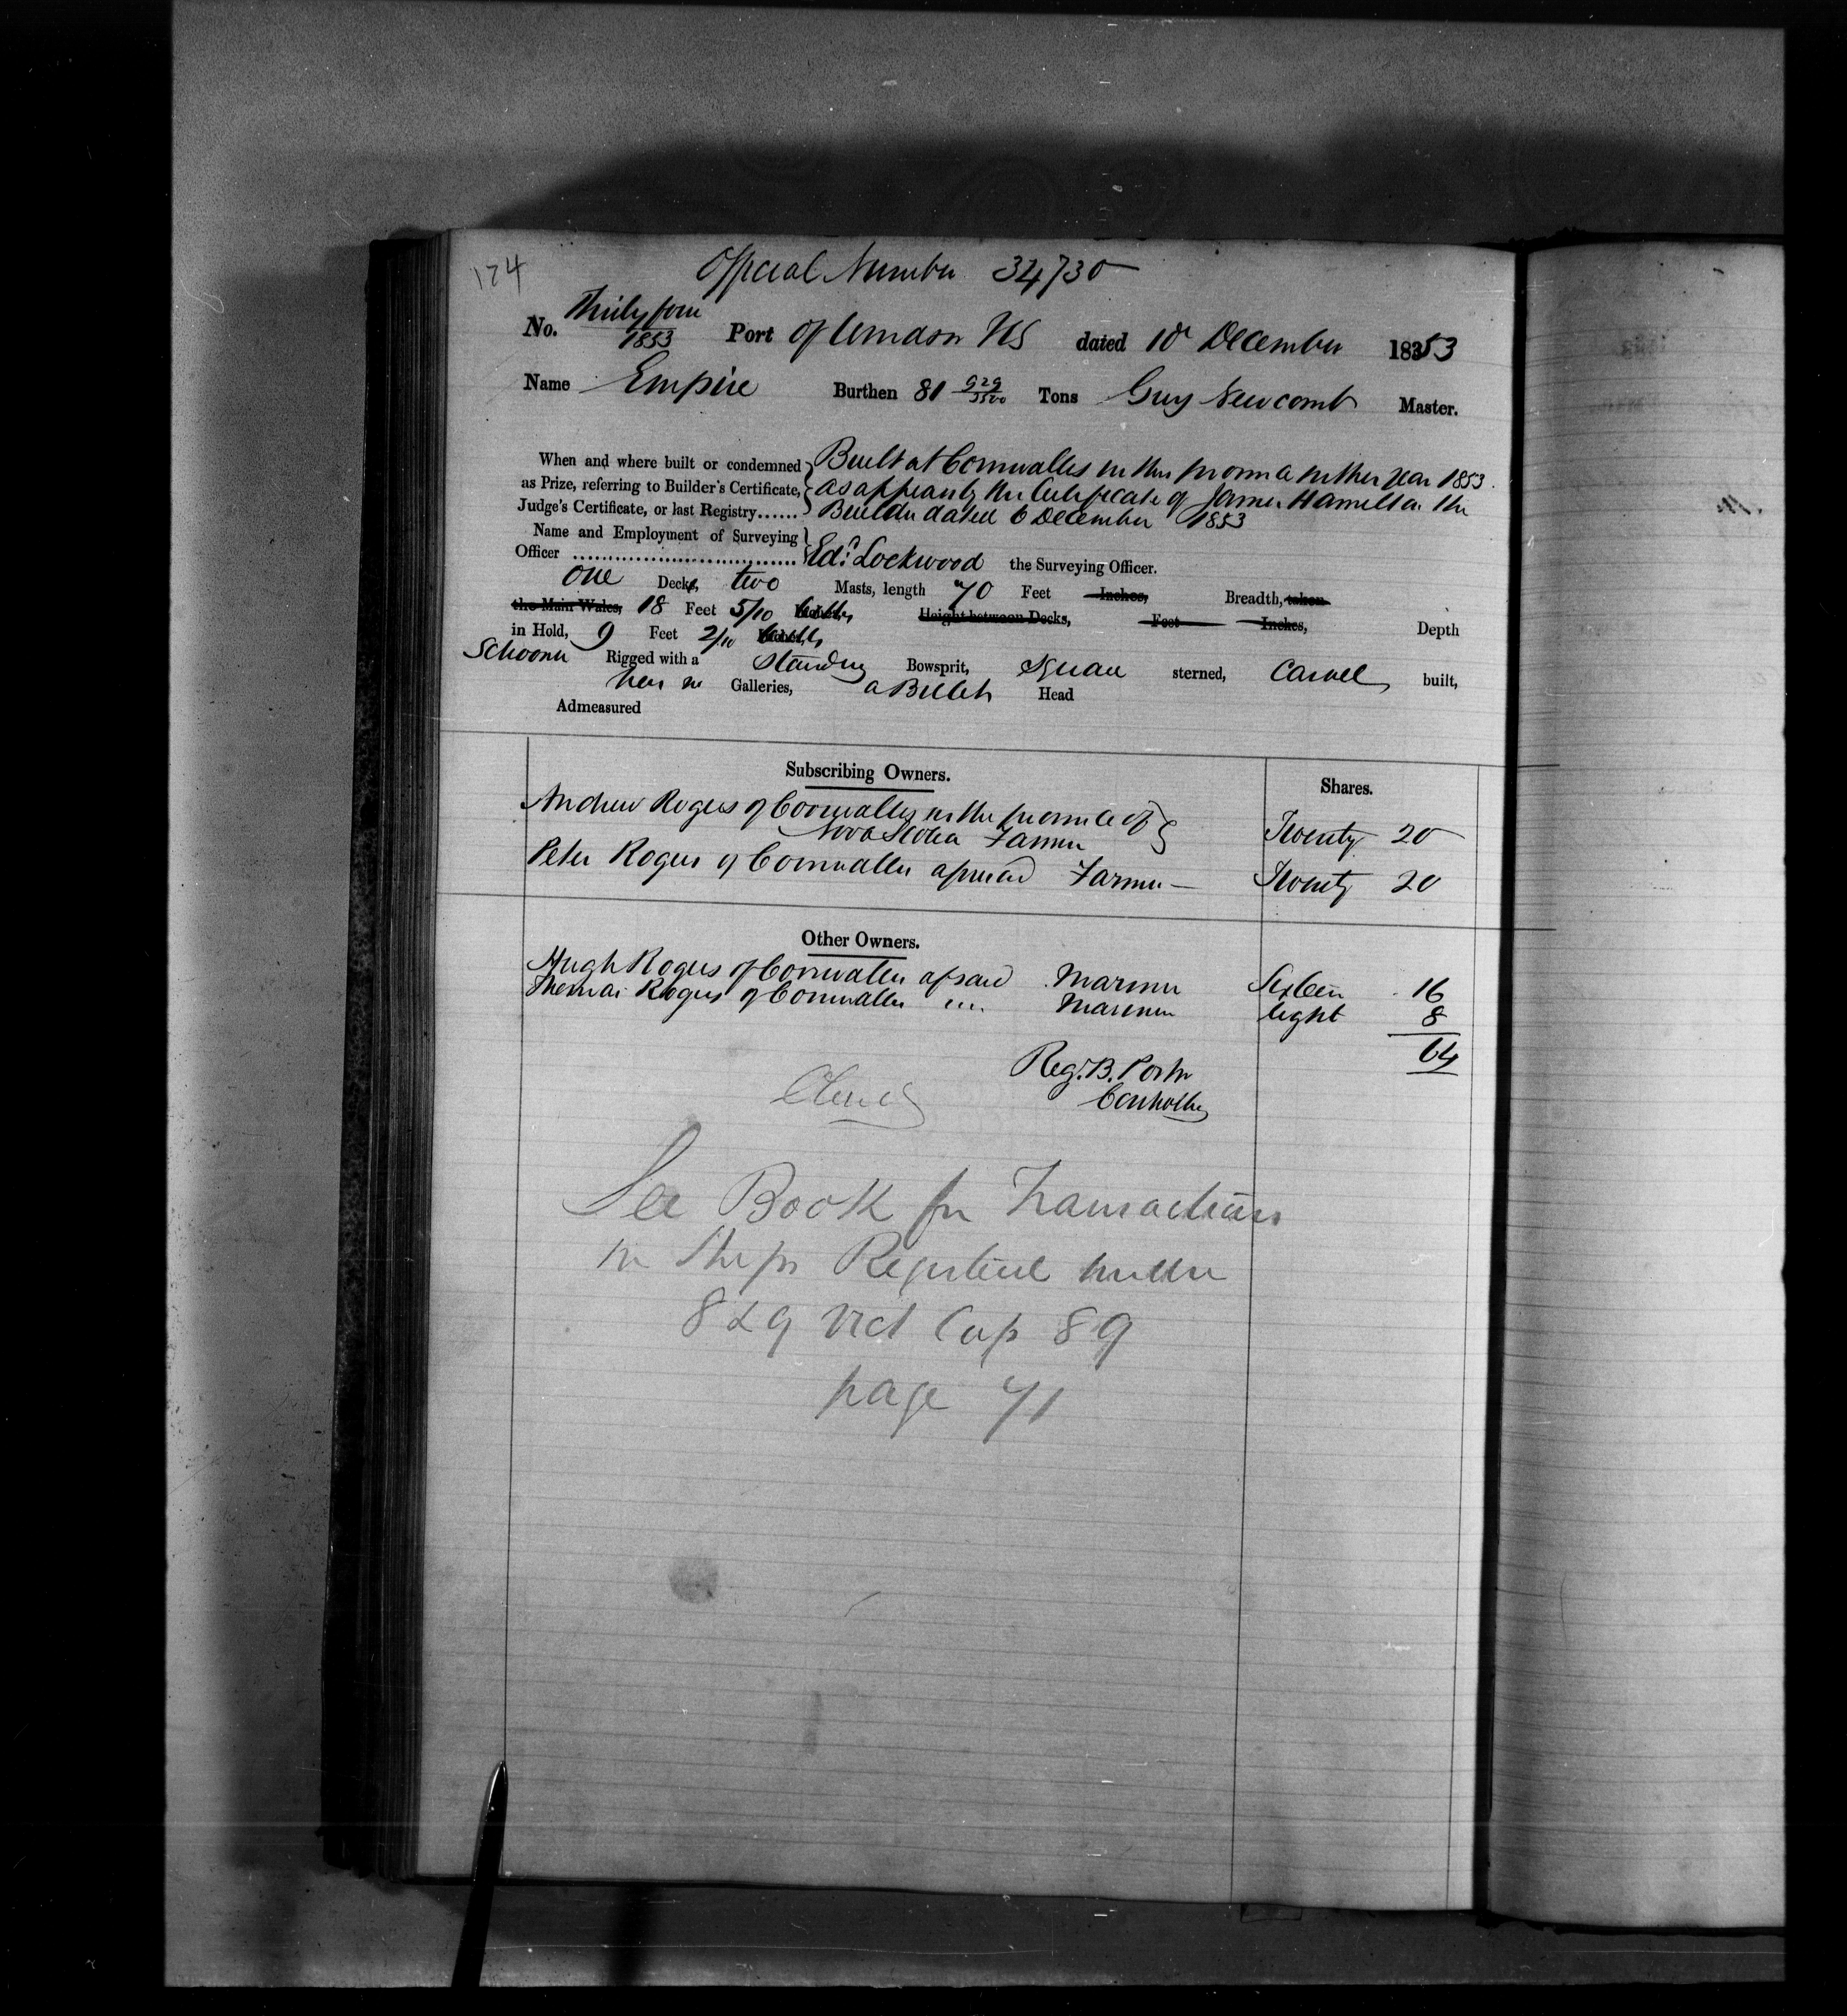 174
Official Number 34730
No. Thirty four 1853 Port of Windsor NS dated 10 December 1853
Name Empire Burthen 81 929/3500 Tons Guy Newcomb Master.
When and where built or condemned Built at Cornwallis in this province in the year 1853.
as Prize, referring to Builder's Certificate, as appears by the Certificate of James Hamilton the
Judge's Certificate, or last Registry...... Builder dated 6 December 1853
Name and Employment of Surveying
Officer .............................. Ed. Lockwood the Surveying Officer.
one Decks, two Masts, length 70 Feet Inches, Breadth, taken
the Main Wales, 18 Feet 5/10 Height between Decks, Feet Inches, Depth
in Hold, 9 Feet 2/10
Schooner Rigged with a standing Bowsprit, Square sterned, Carvel built,
has no Galleries, a Billet Head
Admeasured
Subscribing Owners. Shares.
Andrew Rogers of Cornwallis in the province of
Nova Scotia Farmer Twenty 20
Peter Rogers of Cornwallis aforesaid Farmer — Twenty 20
Other Owners.
Hugh Rogers of Cornwallis afsaid Mariner Sixteen 16
Thomas Rogers of Cornwallis " " Mariner Eight 8
64
Reg. B. Porter
Controller
Closed
See Book for Transactions
in Ships Registered under
8 & 9 Vict Cap 89
page 71